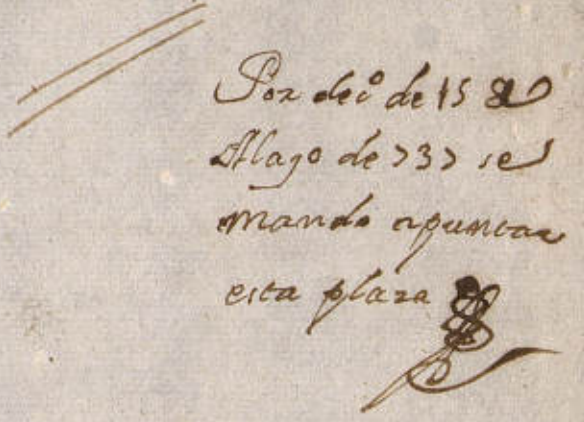 Por dec.º de 15 de
Mayo de 737 se
mando apuntar
esta plaza